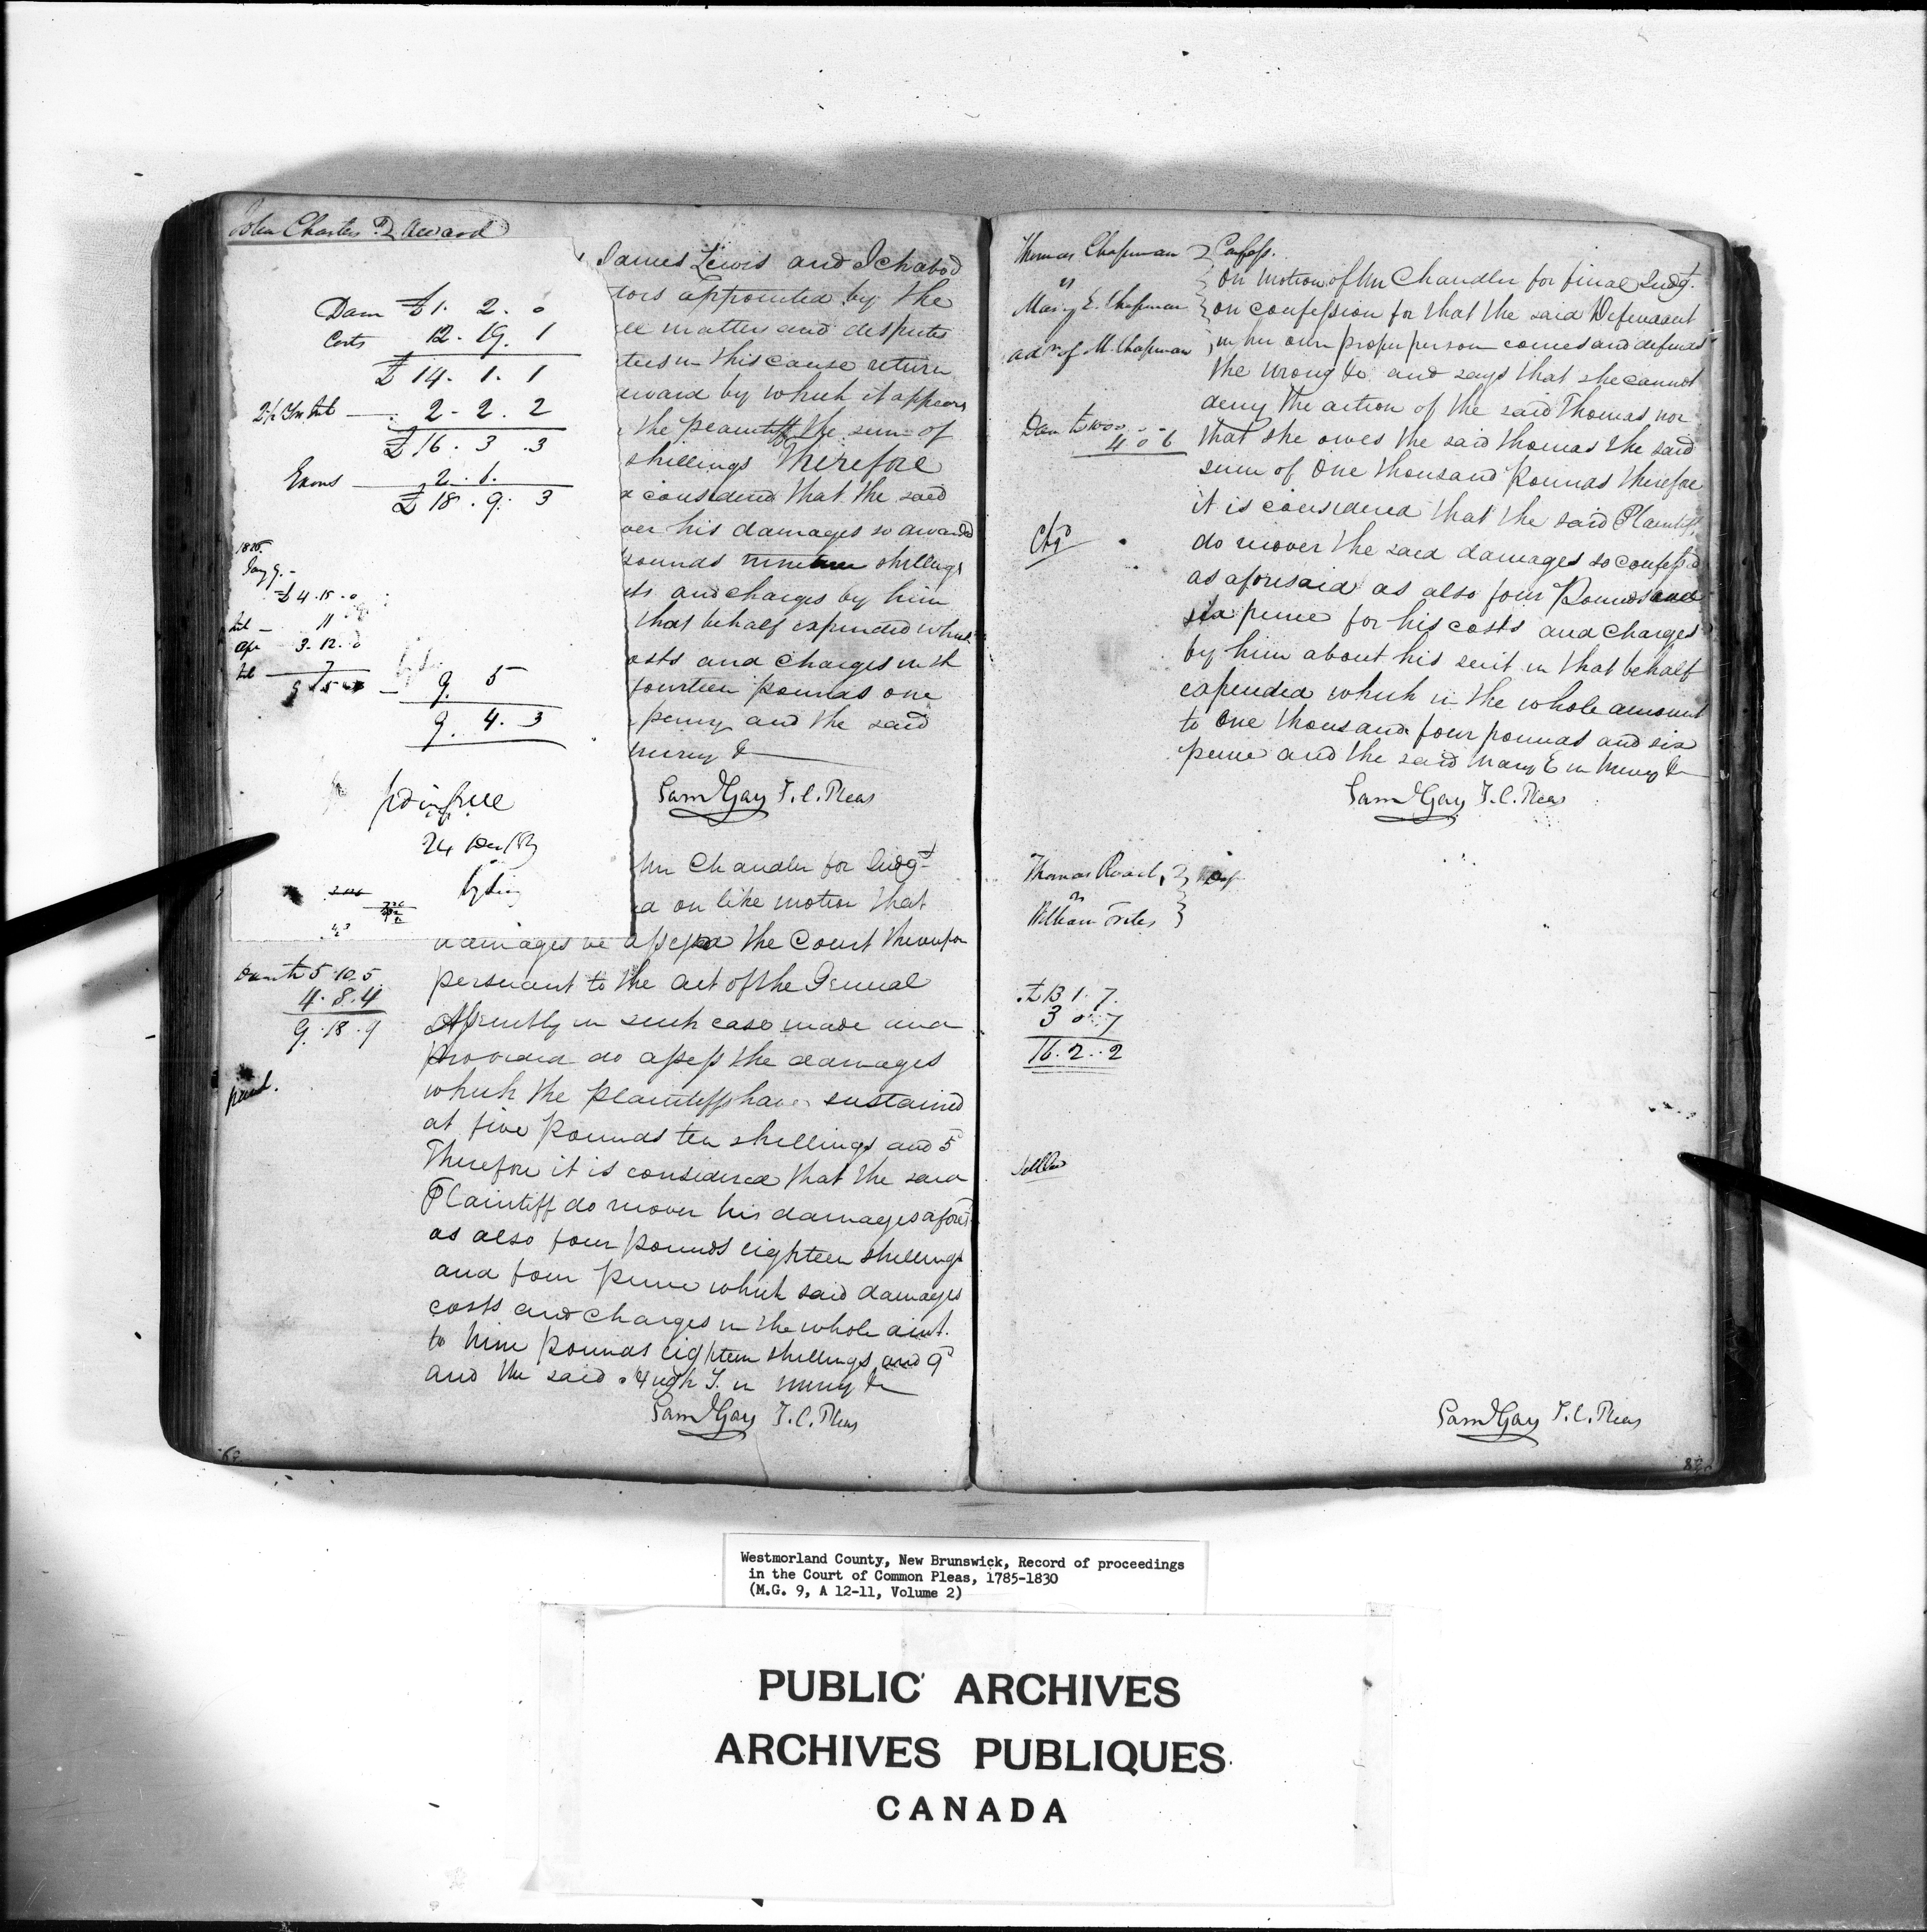 John Charters } Award
James Lewis and Ichabod
tors appointed by the
ll matters and disputes
ties in this cause return
award by which it appears
the plaintiff the sum of
shillings Therefore
considered that the said
ver his damages so awarded
pounds shillings
sts and charges by him
that behalf expended which
osts and charges in th
fourteen pounds one
penny and the said
mercy &
Sam Gay J. C. Pleas
Dam £1. 2. 0
Costs 12. 19. 1
£14. 1. 1
2. 2. 2
£16. 3. 3
2. 6.
£18. 9. 3
£4. 15. 0
11
3. 12. 0
7
9. 5
9. 4. 3
pd in full
24 Dec
Mr Chandler for Judgt
d on like motion that
damages be assessed the Court thereupon
persuant to the act of the General
Assembly in such case made and
provided do assess the damages
which the plaintiffs have sustained
at five pounds ten shillings and 5d
Therefore it is considered that the said
Plaintiff do recover his damages afores
as also four pounds eighteen shillings
and four pence which said damages
costs and charges in the whole amt.
to nine pounds eighteen shillings and 9d
and the said Hugh J. in mercy &
Sam Gay J. C. Pleas
Dam £5. 10. 5
4. 8. 4
9. 18. 9
paid.
Thomas Chapman } Confess.
vs
Mary E. Chapman
adx of M. Chapman
On motion of Mr Chandler for final Judgt.
on confession for that the said Defendant
in her own proper person comes and defends
the wrong &c and says that she cannot
deny the action of the said Thomas nor
that she owes the said Thomas the said
sum of One thousand Pounds therefore
it is considered that the said Plaintiff
do recover the said damages so confess'd
as aforesaid as also four Pounds and
six pence for his costs and charges
by him about his suit in that behalf
expended which in the whole amount
to One thousand four pounds and six
pence and the said Mary E in Mercy &
Sam Gay J. C. Pleas
Dam £1000. - -
4 0 6
Thomas Roach
vs
William
£13 1. 7.
3 0 7
16. 2. 2
Settled
Sam Gay J. C. Pleas
Westmorland County, New Brunswick, Record of proceedings
in the Court of Common Pleas, 1785-1830
(M.G. 9, A 12-11, Volume 2)
PUBLIC ARCHIVES
ARCHIVES PUBLIQUES
CANADA